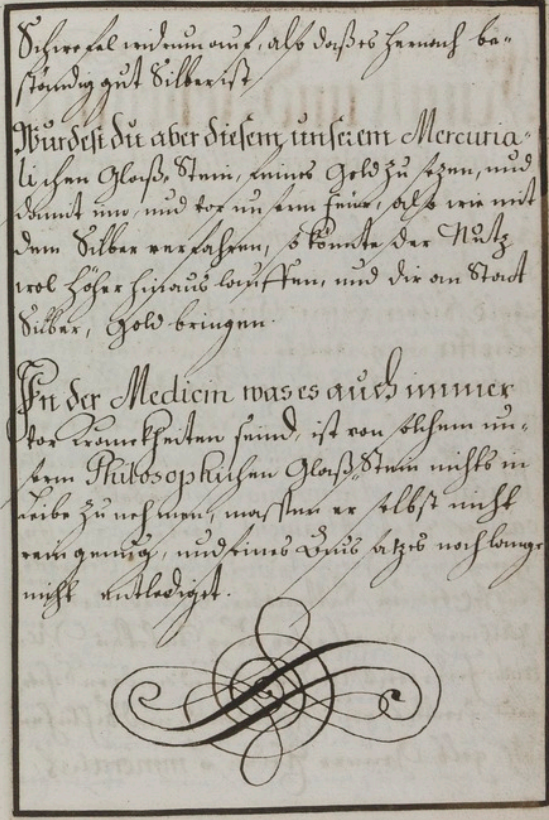 Schwefel widerumb auf, alß daß es hernach be-
ständig gut Silber ist.
Würdest du aber diesem unserem Mercuria-
lischen Glaß-Stein, feines Gold zu sezen, und
damit nun, und vor in dem Feür, alß wie mit
dem Silber verfahren, so könnte der Nutz
wol höher hinaus lauffen, und dir an Statt
Silber, Gold bringen.
In der Medicin was es auch immer
vor Kranckheiten seind, ist von solchem un-
serm Philosophischen Glaß-Stein nichts in
Leibe zu nehmen, massen er selbst nicht
rein genug, und seines Zusatzes noch lange
nicht entlediget.